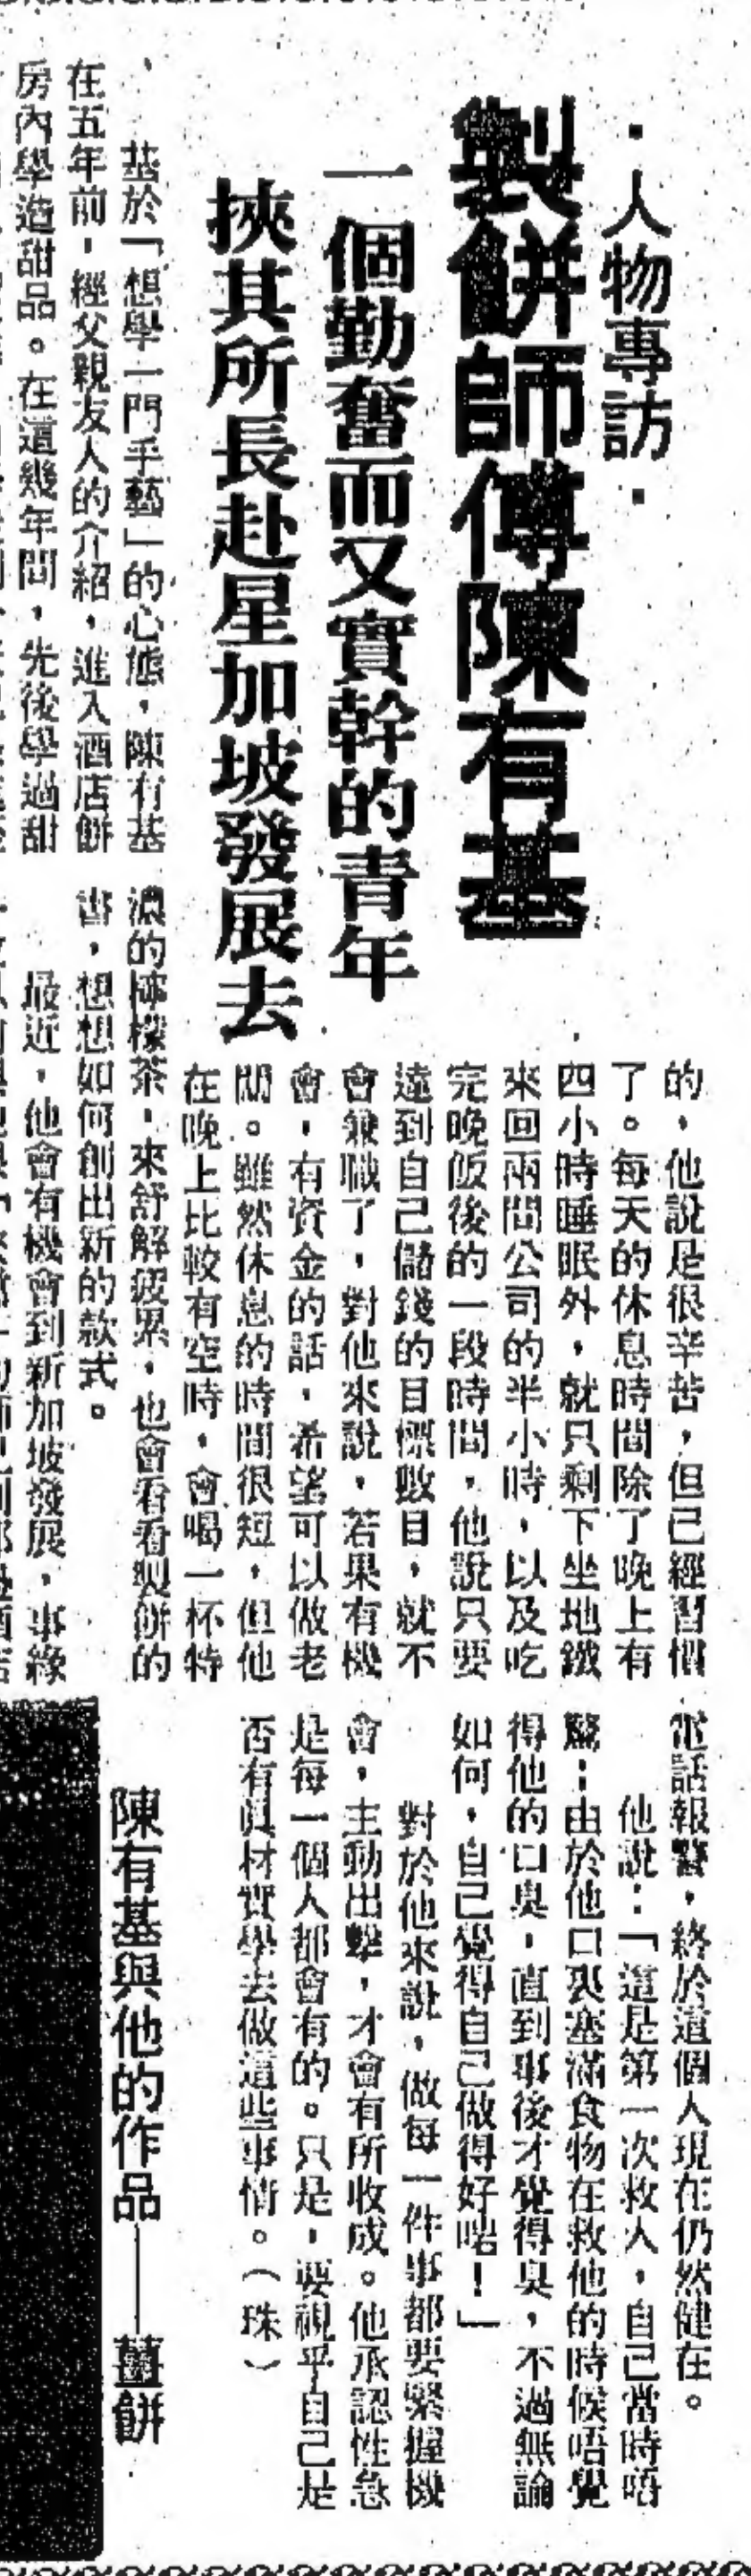 ·人物專訪·
製餅師傅陳有基
一個勤奮而又實幹的青年
挾其所長赴星加坡發展去
基於「想學一門手藝」的心態，陳有基
在五年前，經父親友人的介紹，進入酒店餅
房內學造甜品。在這幾年間，先後學過甜
的，他說是很辛苦，但已經習慣
了。每天的休息時間除了晚上有
四小時睡眠外，就只剩下坐地鐵
來回兩間公司的半小時，以及吃
完晚飯後的一段時間，他說只要
達到自己儲錢的目標數目，就不
會兼職了，對他來說，若果有機
會，有資金的話，希望可以做老
闆。雖然休息的時間很短，但他
在晚上比較有空時，會喝一杯特
濃的檸檬茶，來舒解疲累，也會看看製餅的
書，想想如何創出新的款式。
最近，他會有機會到新加坡發展，事緣
電話報警，終於這個人現在仍然健在。
他說：「這是第一次救人，自己當時唔
驚；由於他口裏塞滿食物在救他的時候唔覺
得他的口臭，直到事後才覺得臭，不過無論
如何，自己覺得自己做得好啱！」
對於他來說，做每一件事都要緊握機
會，主動出擊，才會有所收成。他承認性急
是每一個人都會有的。只是，要視乎自己是
否有眞材實學去做這些事情。（珠）
陳有基與他的作品——薑餅